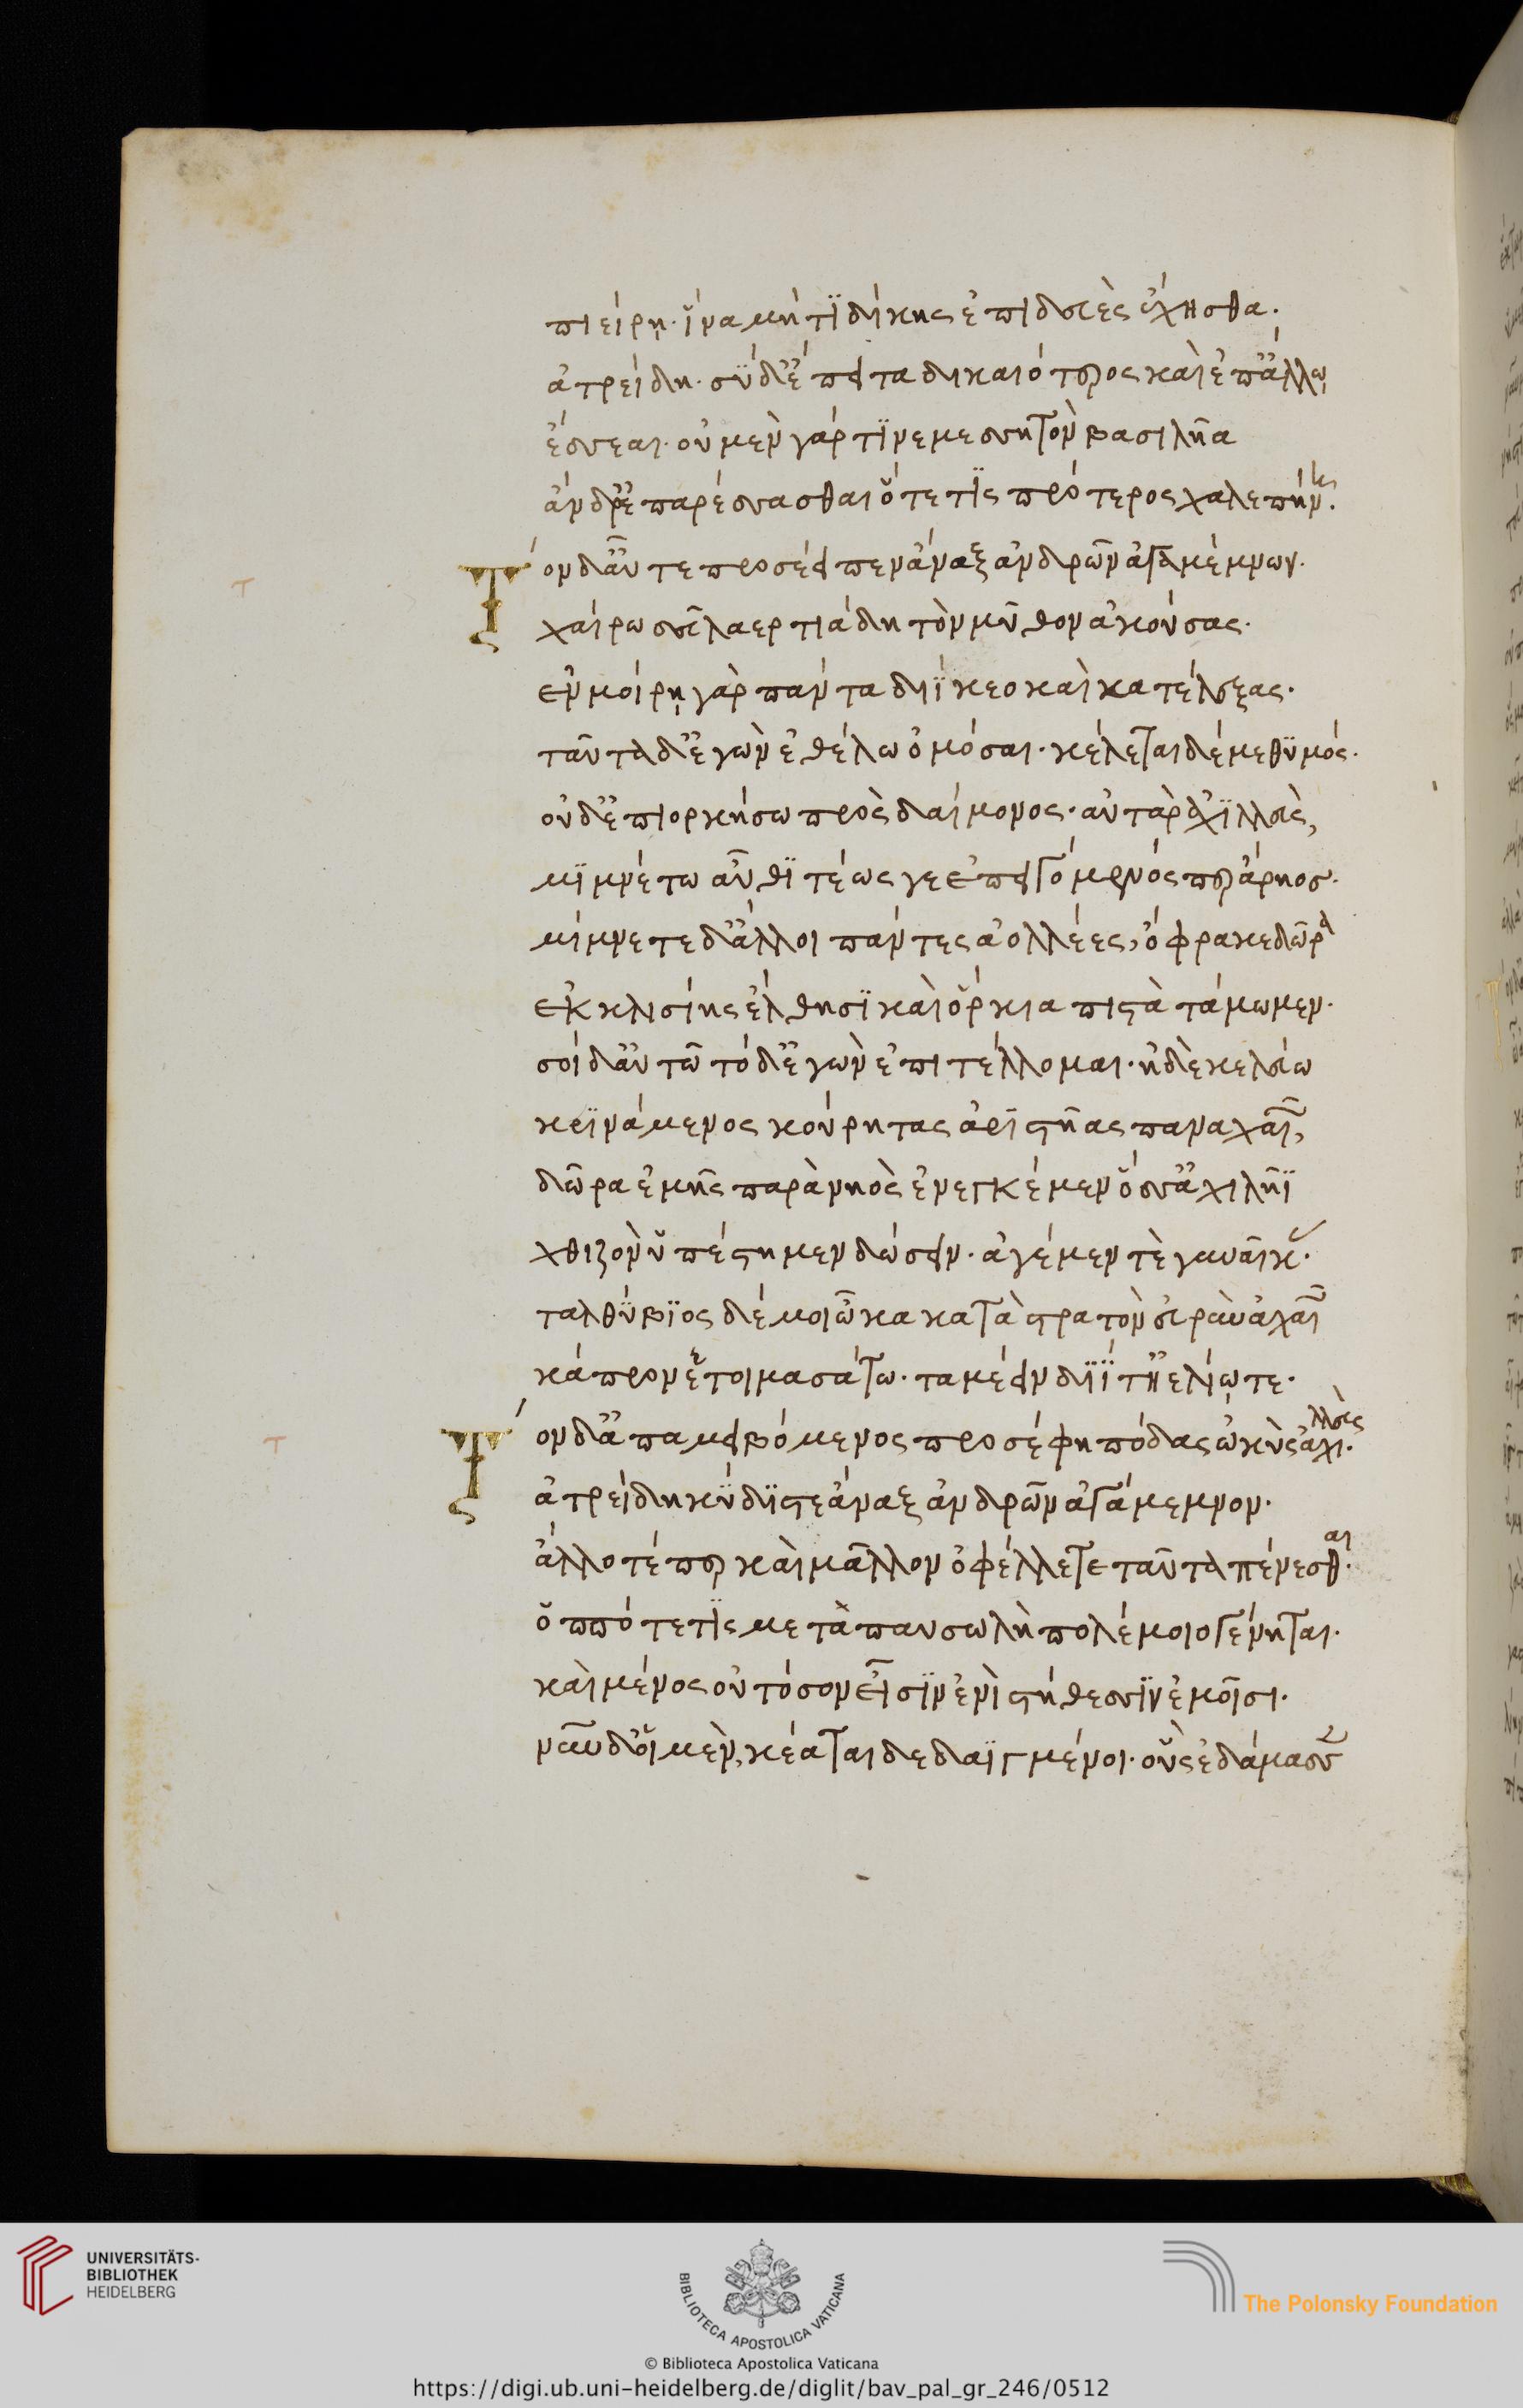 πιείρῃ· ἵνα μήτϊ δίκης ἐπιδευὲς ἔχησθα·
ἀτρείδη· σὺ δ' ἔπειτα δικαιότερος καὶ ἐπ' ἄλλῳ
ἔσσεαι· οὐ μὲν γάρ τϊ νεμεσσητὸν βασιλῆα
ἄνδρ' ἐπαρέσσασθαι ὅτε τϊς πρότερος χαλεπήνῃ·
Τὸν δ' αὖτε προσέειπεν ἄναξ ἀνδρῶν ἀγαμέμνων·
χαίρω σεῦ λαερτιάδη τὸν μῦθον ἀκούσας·
ἐν μοίρῃ γὰρ πάντα διΐκεο καὶ κατέλεξας·
ταῦτα δ' ἐγὼν ἐθέλω ὀμόσαι· κέλεται δέ με θϋμός·
οὐδ' ἐπιορκήσω πρὸς δαίμονος· αὐτὰρ ἀχϊλλεὺς,
μϊμνέτω αὖθϊ τέως γε ἐπειγόμενός περ ἄρηος·
μίμνετε δ' ἄλλοι πάντες ἀολλέες, ὄφρα κε δῶρα
ἐκ κλισίης ἔλθησϊ καὶ ὅρκια πιστὰ τάμωμεν·
σοὶ δ' αὐτῶ τόδ' ἐγὼν ἐπιτέλλομαι· ἠδὲ κελεύω
κρϊνάμενος κούρητας ἀρϊστῆας παναχαιῶν,
δῶρα ἐμῆς παρὰ νηὸς ἐνεγκέμεν ὅσσ' ἀχιλῆϊ
χθιζὸν ὑπέστημεν δώσειν· ἀγέμεν τὲ γυναῖκας·
ταλθύβϊος δέ μοι ὦκα κατὰ στρατὸν εὐρὺν ἀχαιῶν
κάπρον ἑτοιμασάτω· ταμέειν διΐ τ' ἠελίῳ τε·
Τὸν δ' ἀπαμειβόμενος προσέφη πόδας ὠκὺς ἀχιλλεύς·
ἀτρείδη κύδϊστε ἄναξ ἀνδρῶν ἀγάμεμνον·
ἄλλοτέ περ καὶ μᾶλλον ὀφέλλετε ταῦτα πένεσθαι·
ὁππότε τϊς μετὰ παυσωλὴ πολέμοιο γένηται·
καὶ μένος οὐ τόσον εἶσϊν ἐνὶ στήθεσσϊν ἐμοῖσι·
νῦν δ' οἳ μὲν, κέαται δεδαϊγμένοι· οὓς ἐδάμασσεν
τ
τ
UNIVERSITÄTS-
BIBLIOTHEK
HEIDELBERG
BIBLIOTECA APOSTOLICA VATICANA
© Biblioteca Apostolica Vaticana
The Polonsky Foundation
https://digi.ub.uni-heidelberg.de/diglit/bav_pal_gr_246/0512